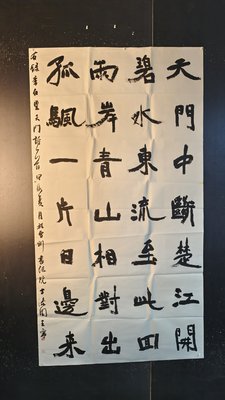 天門中斷楚江開
碧水東流至此回
兩岸青山相對出
孤颿一片日邊来
李白望天門詩